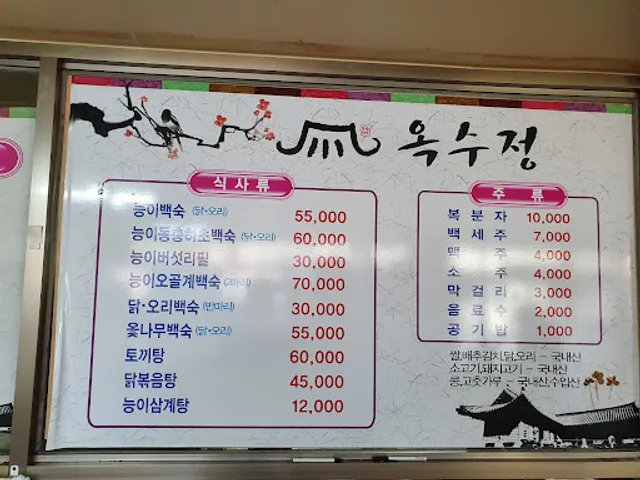 옥수정
식사류
능이백숙 (닭•오리) 55,000
능이동충하초백숙 (닭•오리) 60,000
능이버섯리필 30,000
능이오골계백숙 (2마리) 70,000
닭·오리백숙 (반마리) 30,000
옻나무백숙 (닭•오리) 55,000
토끼탕 60,000
닭볶음탕 45,000
능이삼계탕 12,000
주류
복분자 10,000
백세주 7,000
맥주 4,000
소주 4,000
막걸리 3,000
음료수 2,000
공기밥 1,000
쌀,배추김치,닭,오리 - 국내산
소고기,돼지고기 - 국내산
콩,고춧가루 - 국내산,수입산